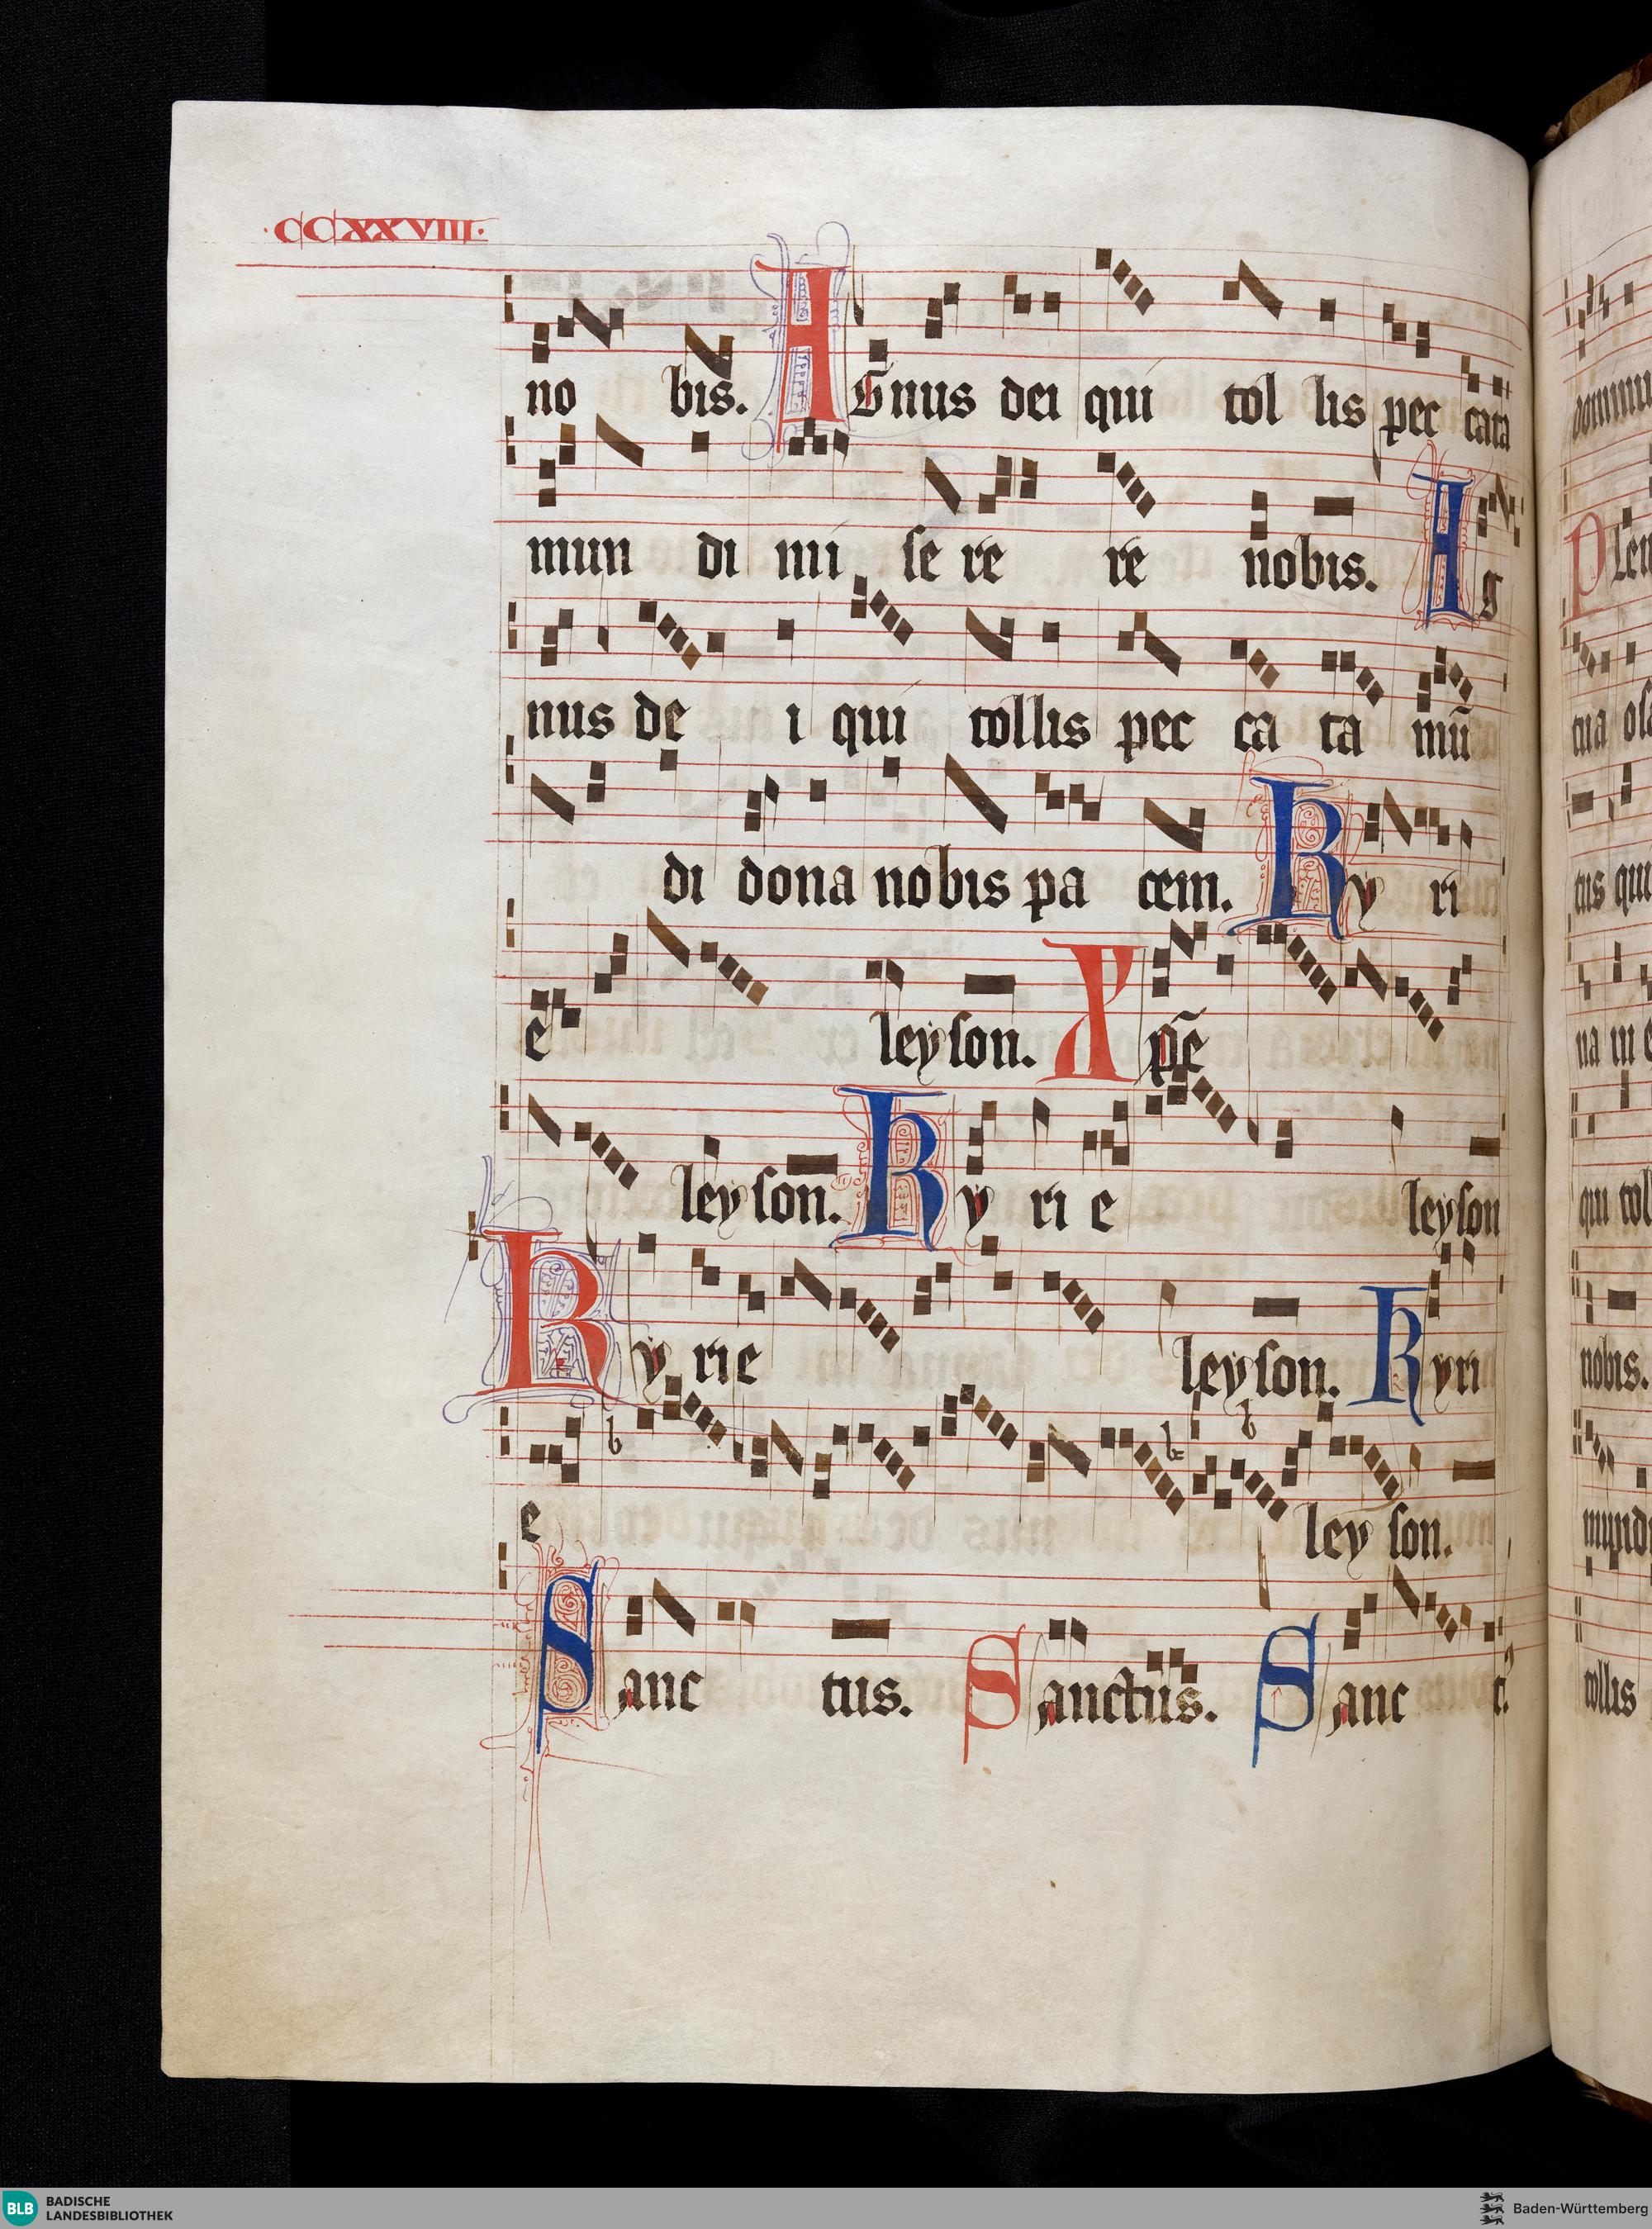 ·CCXXVIII·
no bis. Agnus dei qui tol lis pec cata
mun di mi se re re nobis. Ag
nus de i qui tollis pec ca ta mū
di dona nobis pa cem. Ky ri
e leyson. Xpē
leyson. Ky ri e leyson
Ky rie leyson. Kyri
e ley son.
Sanc tus. Sanctus. Sanc
BLB BADISCHE LANDESBIBLIOTHEK
Baden-Württemberg